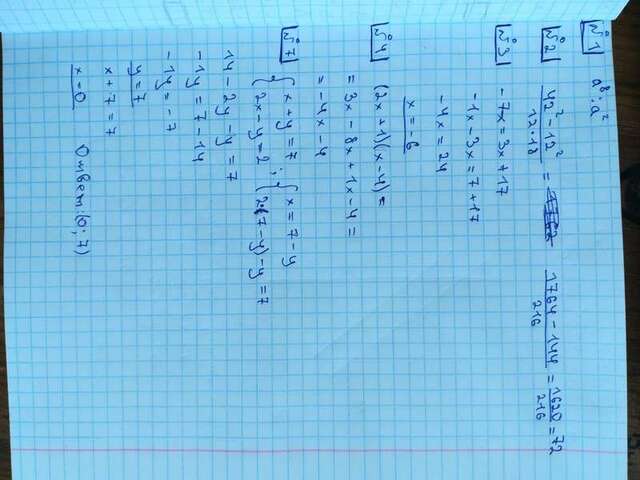 №1 a⁸ : a²
№2 (42² - 12²)/(12·18) = (1764 - 144)/216 = 1620/216 = 72
№3 - 7x = 3x + 17
- 1x - 3x = 7 + 17
- 4x = 24
x = -6
№4 (2x + 1)(x - 4) =
= 3x - 8x + 1x - 4 =
= -4x - 4
№7 { x + y = 7 ; { x = 7 - y
{ 2x - y = 2 ; { 2(7 - y) - y = 7
14 - 2y - y = 7
- 1y = 7 - 14
- 1y = - 7
y = 7
x + 7 = 7
x = 0 Ответ (0; 7)